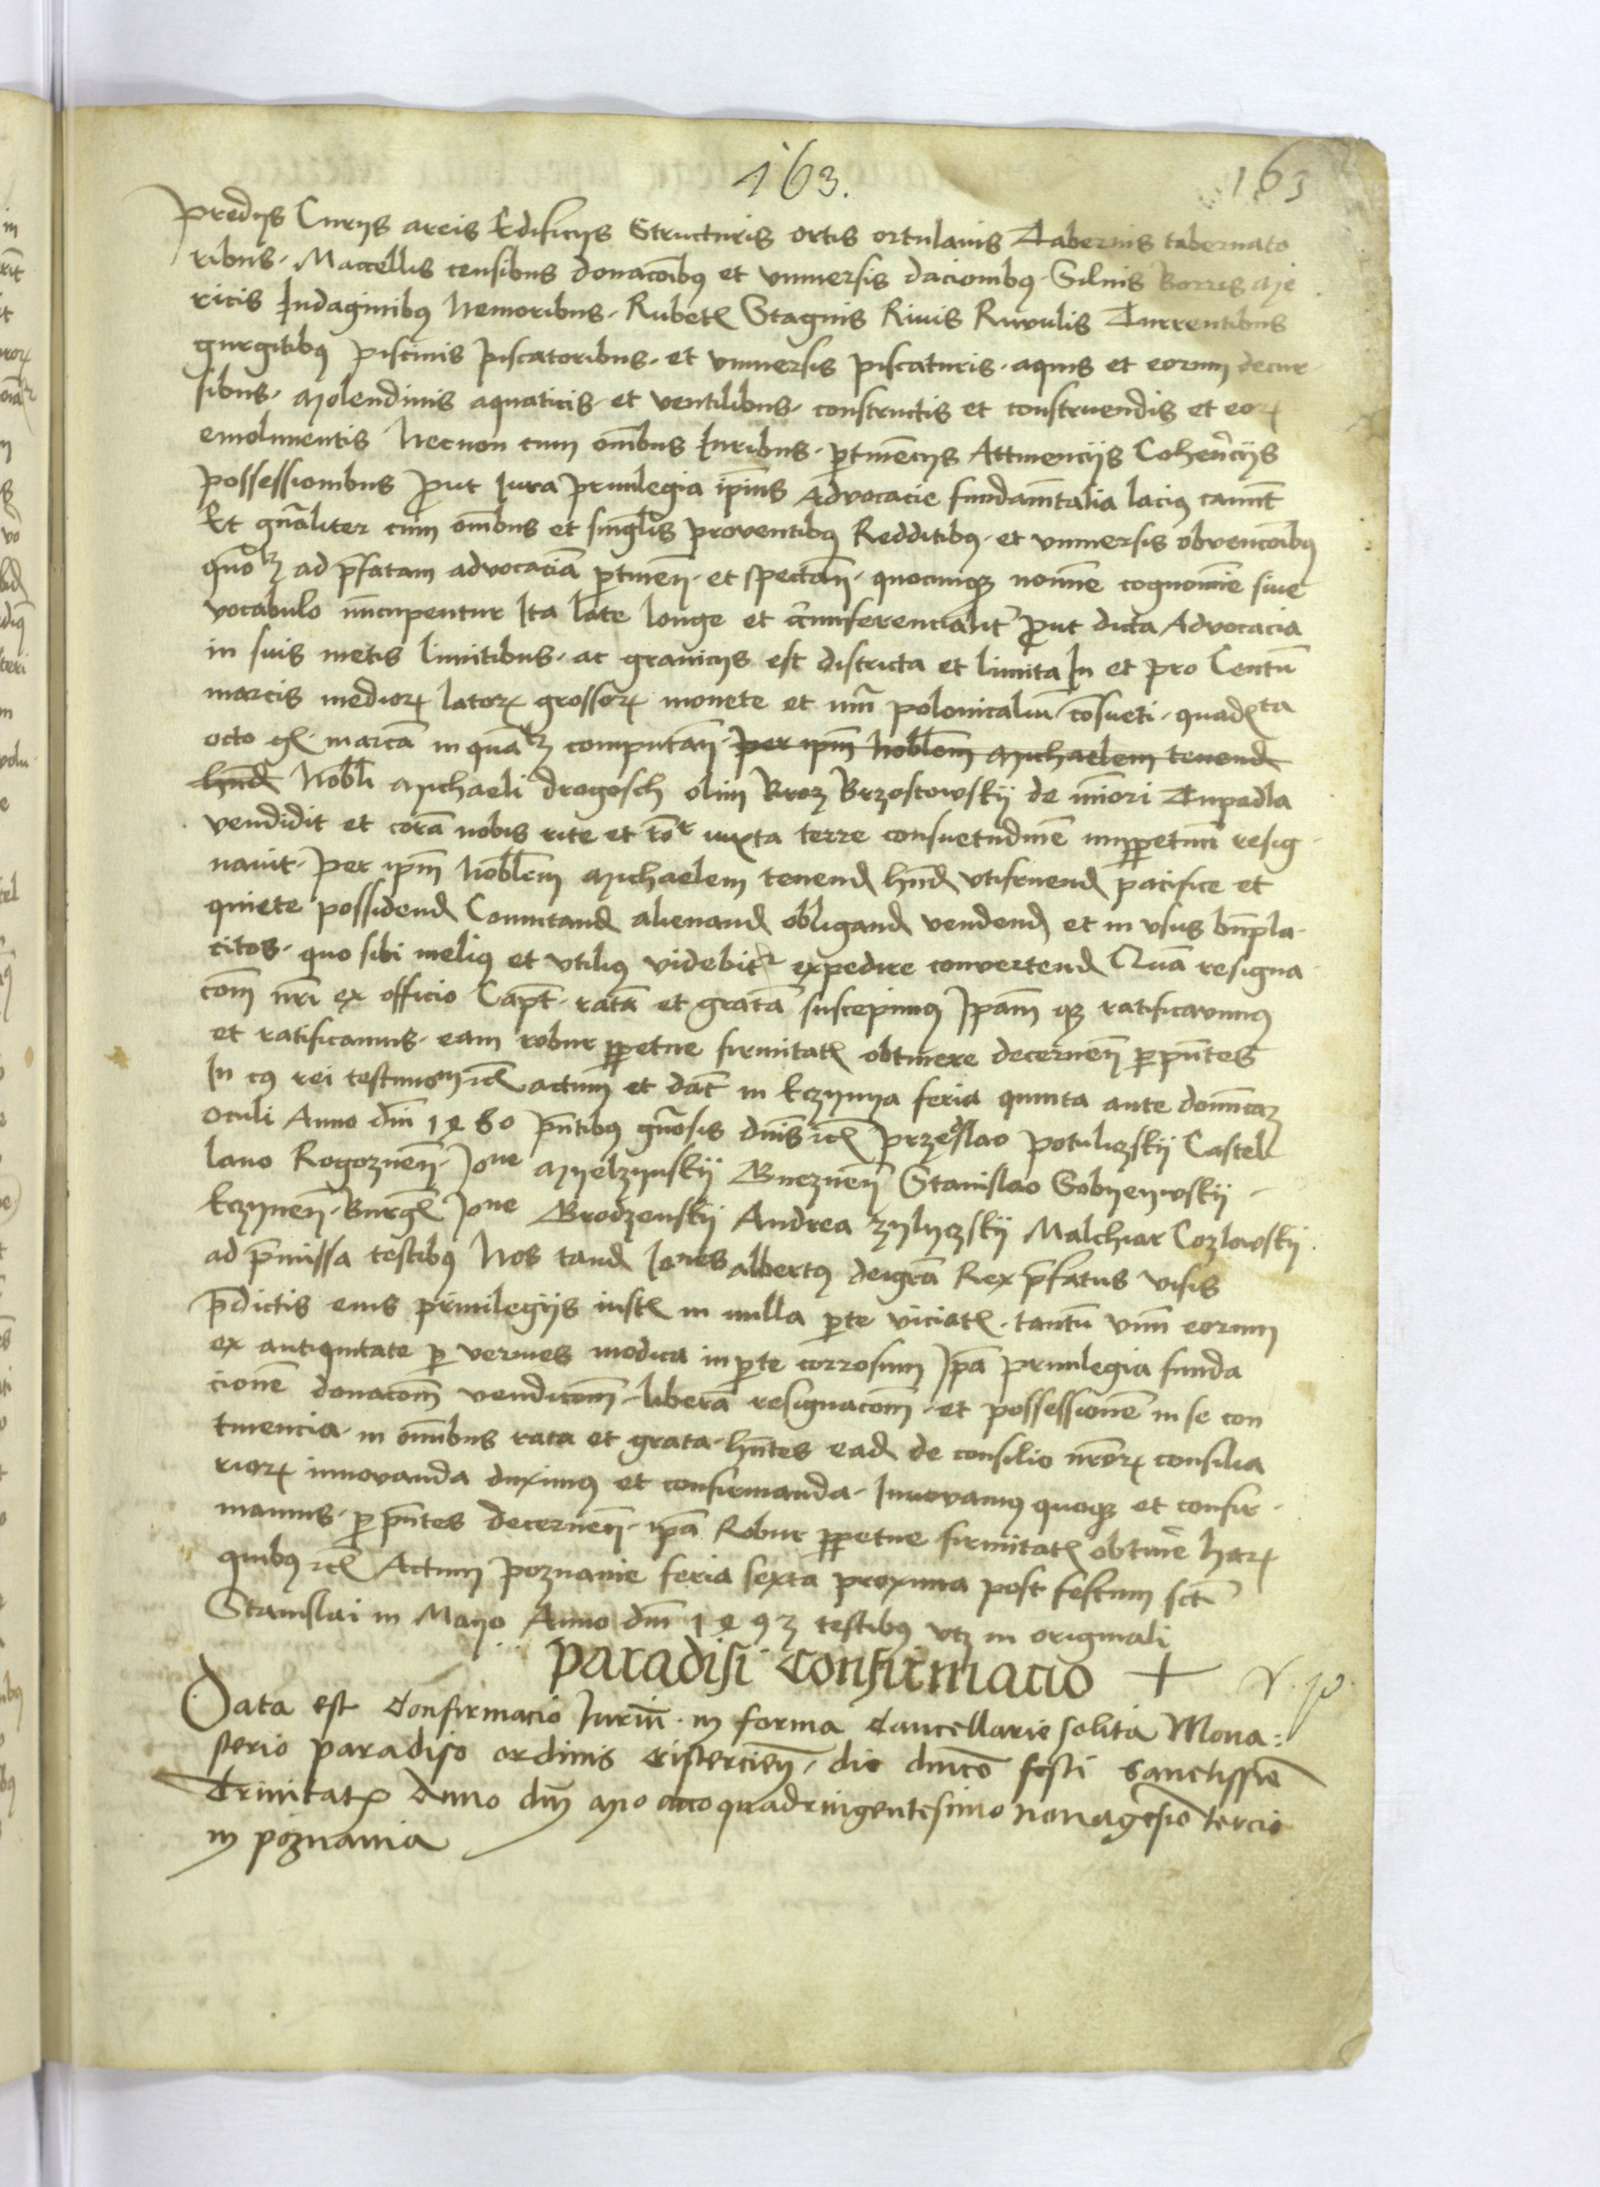 163.
163
predijs Curijs areis Edificijs Structuris ortis ortulanis Tabernis tabernato
ribus. Maccellis censibus donacoībꝫ et vniuersis dacionibꝫ. Siluis Borris Me
ricis Indaginibꝫ Nemoribus. Rubetꝭ Stagnis Riuis Riuulis Turrentibus
gurgitibꝫ piscinis piscatoribus. et vniuersis piscaturis. aquis et eorum decur
sibus. Molendinis aquaticis et ventilibus. constructis et construendis et eoꝝ
emolumentis Necnon cum om̄ibus Iuribus. ꝑtinēcijs Attinencijs Coherēcijs
possessionibus prout Iura priuilegia ip̄ius Aduocacie fundamētalia lacius canūt
Et gn̄aliter cum om̄ibus et singulis prouentibꝫ Redditibꝫ. et vniuersis obuencoībꝫ
ad p̄fatam aduocaciā ꝑtineñ. et spectañ. quocumqꝫ nomine cognomine siue
vocabulo nūcupentur Ita late longe et circumferencialiter prout dicta Aduocacia
in suis metis limitibus. ac granicijs est districta et limita In et pro Centū
marcis medioꝝ latoꝝ grossoꝝ monete et nūi polonicaliū cōsueti. quadrgta
octo gꝭ marcā in quālꝫ computañ. per ip̄m Nobilem Michaelem tenend
hn̄d Nobili Michaeli drogosch olim Brzostowskij de minori Tupadla
vendidit et corā nobis rite et rōnr iuxta terre consuetudinē imꝑpetuū resig
nauit. Per ip̄m Nobilem Michaelem tenend hn̄d vtifruend pacifice et
quiete possidend Comutand alienand obligand vendend et in vsus bn̄pla
citos. quo sibi melius et vtilius videbitur expedire conuertend Quā resigna
com̄ nr̄i ex officio Capt. ratā et gratā suscepimꝫ Ip̄am qꝫ ratificauimꝫ
et ratificamus. eam robur ꝑpetue firmitatꝭ obtinere decerneñ ꝑ pn̄tes
In cꝫ rei testimoniū ꝛcꝭ actum et dat̄ in kczynya feria quinta ante dominicaꝫ
Oculi Anno dn̄i 1480 pn̄tibꝫ gn̄osis dn̄is ꝛcꝭ Przedslao Potuliczskij Castel
lano Rogozneñ. Ione Myelzynskij Buczneñ Stanislao Sobyeyuskij
kczyneñ. Burgꝭ Ione Brodzenskij Andrea zylyczskij Malchiar Cozlowskij
ad p̄missa testibus Nos tand Ioanes albertꝫ dei gr̄a Rex p̄fatus visis
p̄dictis eius priuilegijs iustꝭ in nulla ꝑte viciatꝭ. tantū vnū eorum
ex antiquitate ꝑ vermes modica in ꝑte corrosum Ip̄a priuilegia funda
cionē donacom̄ vendicom̄ liberā resignacom̄. et possessionē in se con
tinencia. in om̄ibus rata et grata hn̄tes ead de consilio nr̄oꝝ consilia
rioꝝ innouanda duximꝫ et confirmanda. Innouamꝫ quoqꝫ et confir
mamus. ꝑ pn̄tes decerneñ. ip̄a Robur ꝑpetue firmitatꝭ obtinē̄ haꝝ
quibꝫ ꝛcꝭ Actum poznanie feria sexta proxima post festum sct̄i
Stanislai in Mayo Anno dn̄i 1493 testibꝫ vtꝫ in originali
Paradisi Confirmacio +
Data est Confirmacio Iuriū. in forma Cancellarie solita Mona:
sterio paradiso ordinis cistercieñ. die dn̄ico festi Sanctissime
Trinitatꝭ Anno dn̄i Mo quadringentesimo nonagesimo tercio
in poznania